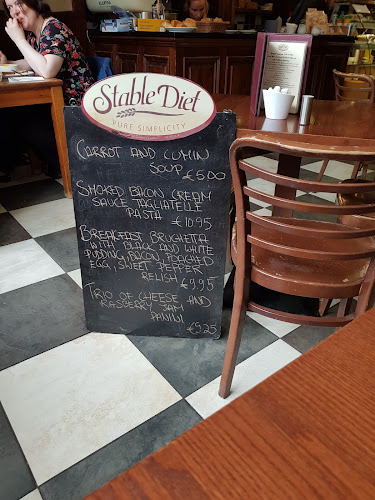 Stable Diet
PURE SIMPLICITY
CARROT AND CUMIN
SOUP €5.00
SMOKED BACON CREAM
SAUCE TAGLIATELLE
PASTA €10.95
BREAKFAST BRUGHETTA
WITH BLACK AND WHITE
PUDDING, BACON, POACHED
EGG, SWEET PEPPER
RELISH €9.95
TRIO OF CHEESE AND
RASPBERRY JAM
PANINI
€9.25